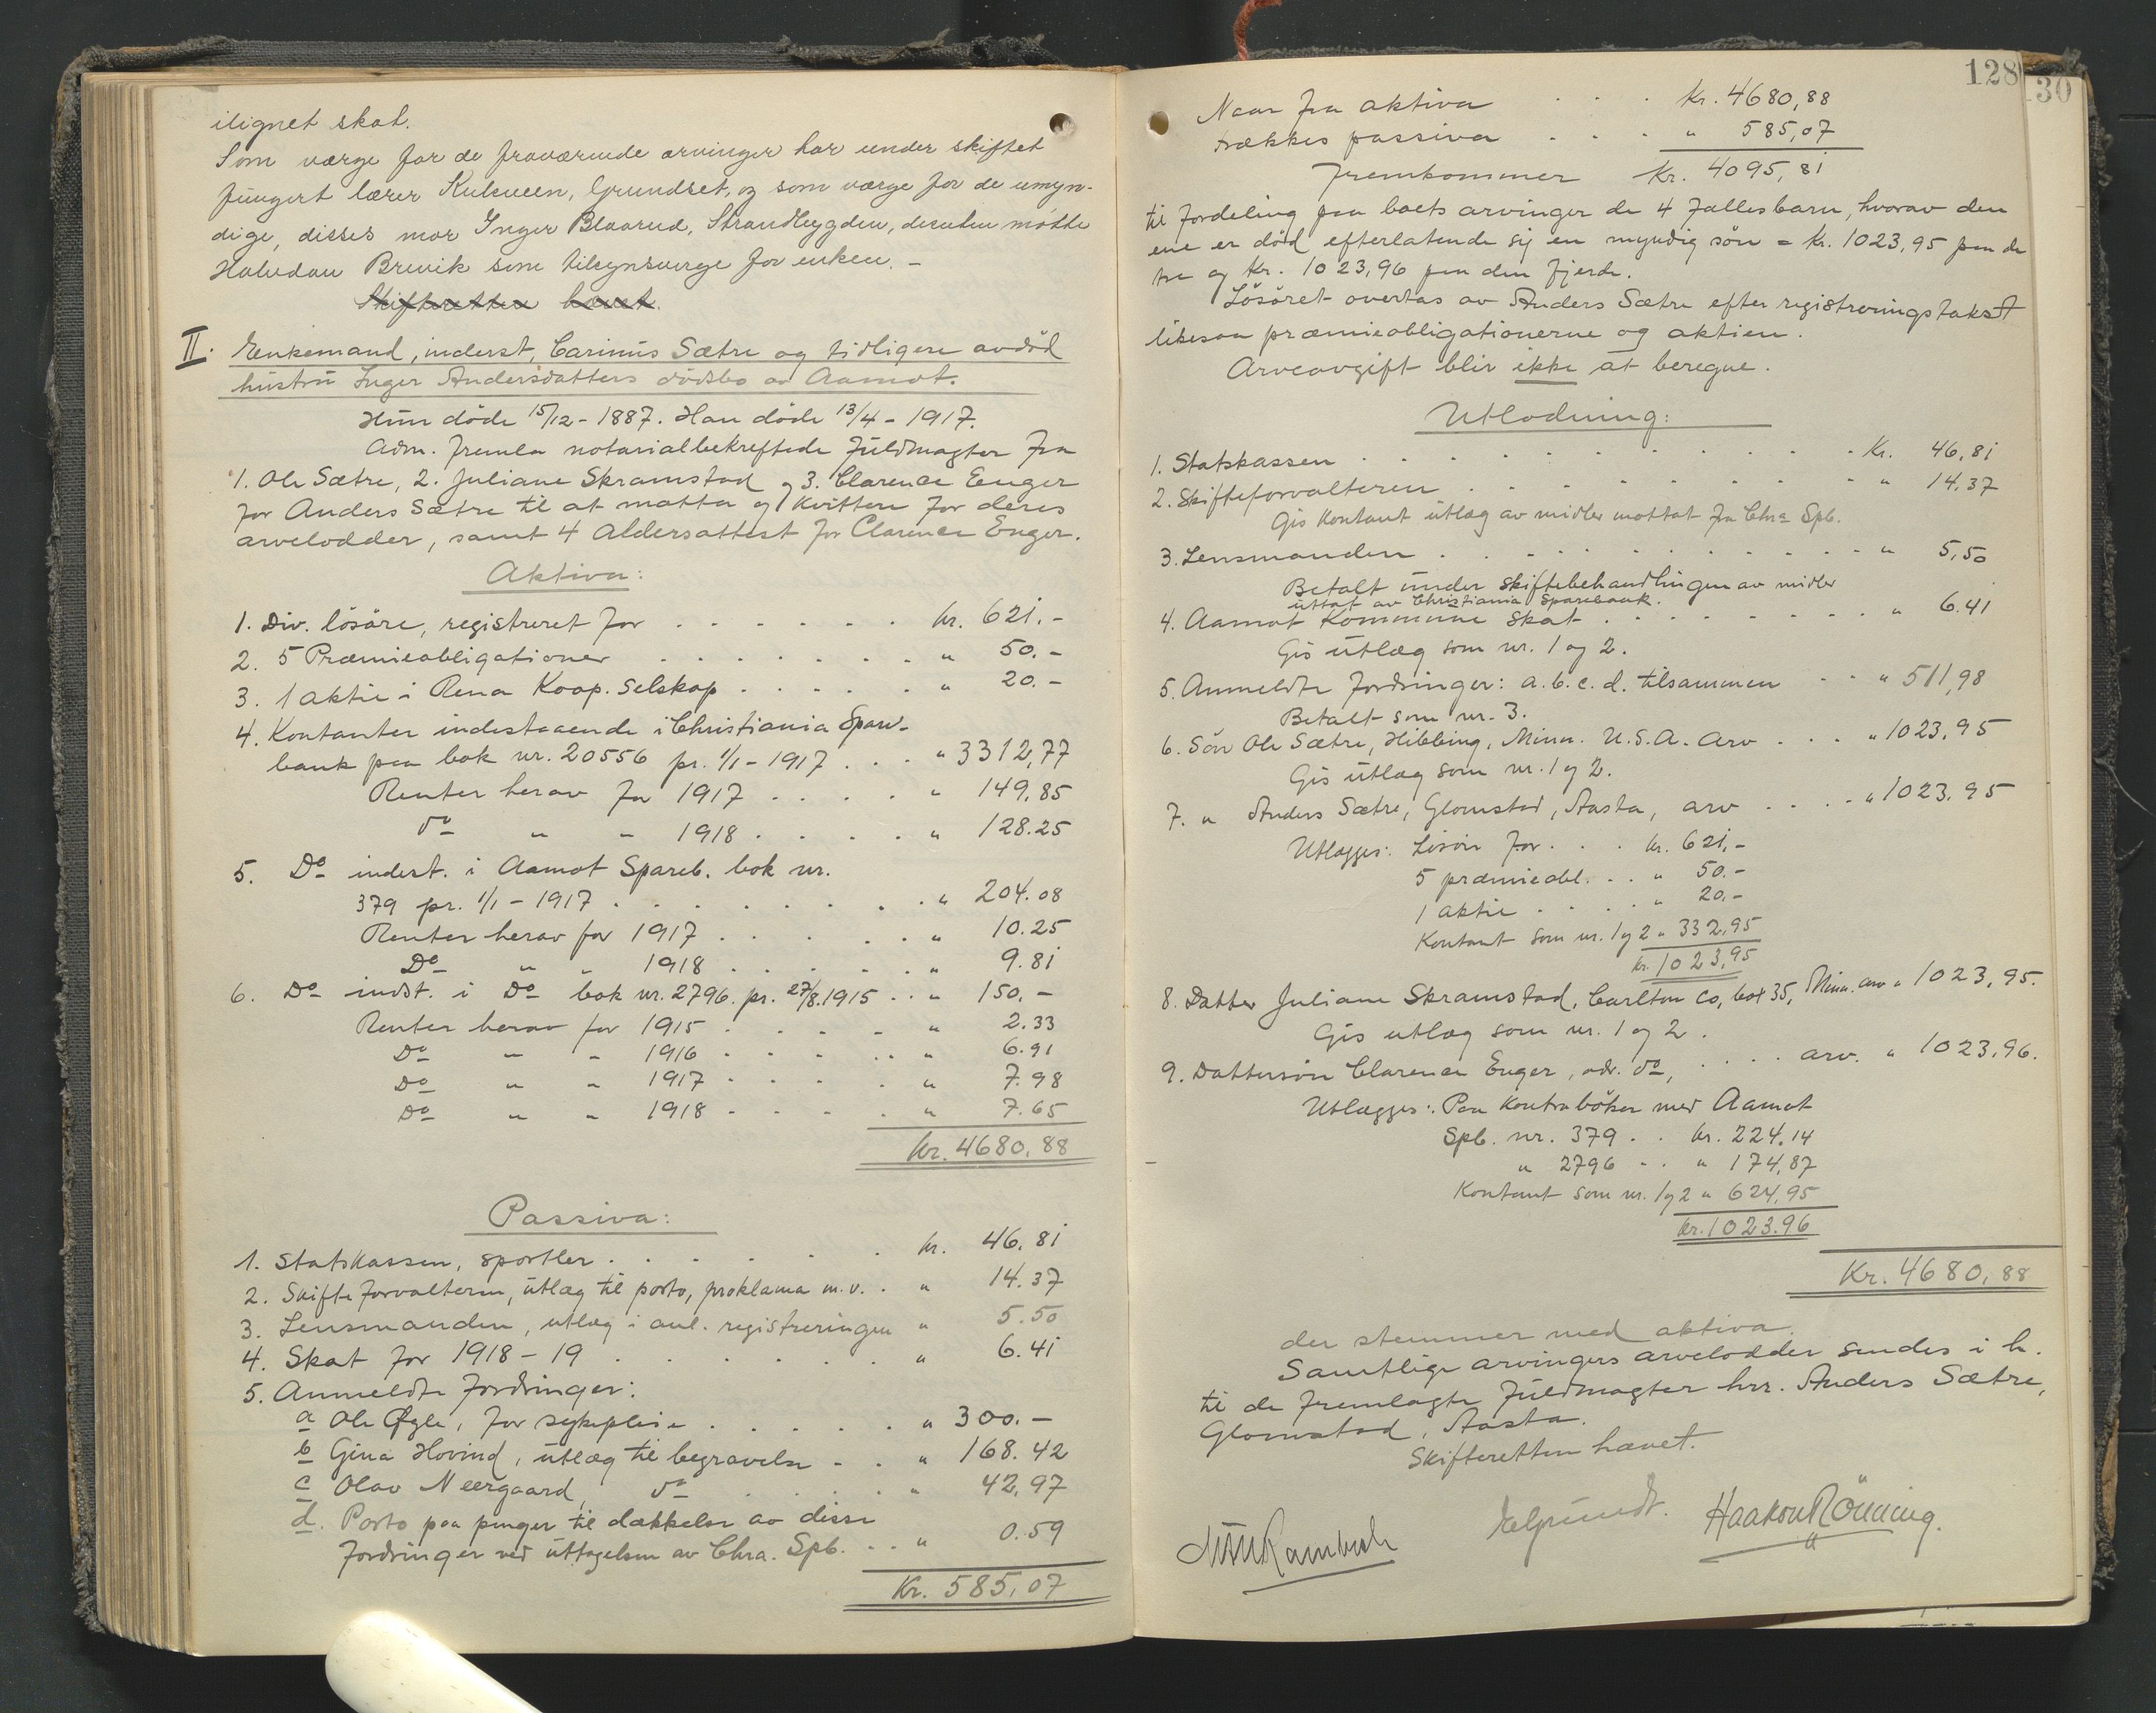 ilignet skat.
Som værge for de fraværende arvinger har under skiftet
fungert lærer Kukveen, Grundset, og som værge for de umyn-
dige, disses mor Inger Blaarud, Strandbygden, desuten møtte
Halvdan Brevik som tilsynsverge for enken. -
Skifteretten hævet.
II. Enkemand, inderst, Carinus Sætre og tidligere avdöd
hustru Inger Andersdatters dödsbo av Aamot.
Hun döde 15/12 - 1887. Han döde 13/4 - 1917.
Adm. fremla notarialbekreftede fuldmagter fra
1. Ole Sætre, 2. Juliane Skramstad og 3. Clarence Enger
for Anders Sætre til at motta og kvittere for deres
arvelodder, samt 4 Aldersattest for Clarence Enger.
Aktiva:
1. Div. lösöre, registreret for . . . . . . kr. 621.-
2. 5 Præmieobligationer . . . . . . . " 50.-
3. 1 aktie i Rena Koop. Selskap . . . . . " 20.-
4. Kontanter indestaaende i Christiania Spare-
bank paa bok nr. 20556 pr. 1/1 - 1917 . . . " 3312,77
Renter herav for 1917 . . . . " 149,85
do " " 1918 . . . . " 128.25
5. Do indest. i Aamot Spareb. bok nr.
379 pr. 1/1 - 1917 . . . . . . . . " 204.08
Renter herav for 1917 . . . . . " 10.25
Do " " 1918 . . . . . " 9.81
6. Do indst. i Do bok nr. 2796. pr. 27/8.1915 . . " 150.-
Renter herav for 1915 . . . . " 2.33
Do " " 1916 . . . . . " 6.91
Do " " 1917 . . . . " 7.98
Do " " 1918 . . . . " 7.65
Kr. 4680,88
Passiva:
1. Statskassen, sportler . . . . . . kr. 46,81
2. Skifteforvalteren, utlæg til porto, proklama m.v. . " 14.37
3. Lensmanden, utlæg i anl. registreringen " 5.50
4. Skat for 1918-19 . . . . . . . " 6.41
5. Anmeldte fordringer:
a Ole Øgle, for sykepleie . . . . . " 300.-
b Gina Hovind, utlæg til begravelse . . " 168.42
c Olav Neergaard, do . . . . " 42,97
d. Porto paa penger til dækkelse av disse
fordringer ved uttagelsen av Chra. Spb. . . " 0.59
Kr. 585,07
128
30
Naar fra aktiva . . . Kr. 4680,88
trækkes passiva . . . . " 585,07
fremkommer Kr. 4095,81
til fordeling paa boets arvinger de 4 fællesbarn, hvorav den
ene er död efterlatende sig en myndig sön = Kr. 1023,95 paa de
tre og Kr. 1023,96 paa den fjerde.
Lösöret overtas av Anders Sætre efter registreringstakst
likesaa præmieobligationerne og aktien.
Arveavgift blir ikke at beregne.
Utlodning:
1. Statskassen . . . . . . . . . . Kr. 46,81
2. Skifteforvalteren . . . . . . . . " 14.37
Gis kontant utlæg av midler mottat fra Chra Spb.
3. Lensmanden . . . . . . . . . . " 5,50
Betalt under skiftebehandlingen av midler
uttat av Christiania Sparebank.
4. Aamot Kommune skat . . . . . . . " 6.41
Gis utlæg som nr. 1 og 2.
5. Anmeldte fordringer: a. b. c. d. tilsammen . . " 511,98
Betalt som nr. 3.
6. Sön Ole Sætre, Hibbing, Minn. U.S.A. arv . . . " 1023,95
Gis utlæg som nr. 1 og 2.
7. " Anders Sætre, Glomstad, Aasta, arv . . . . " 1023.95
Utlægges: Lösöre for . . . kr. 621,-
5 præmieobl. . . " 50.-
1 aktie . . . . " 20.-
Kontant som nr. 1 og 2 " 332,95
kr. 1023,95
8. Datter Juliane Skramstad, Carlton Co, box 35, Minn. arv " 1023,95.
Gis utlæg som nr. 1 og 2.
9. Dattersön Clarence Enger, adr. do, . . . . arv. " 1023.96.
Utlægges: Paa kontrabøker med Aamot
Spb. nr. 379 . . kr. 224.14
" 2796 . . " 174,87
Kontant som nr. 1 og 2 " 624,95
kr. 1023.96
Kr. 4680,88
der stemmer med aktiva.
Samtlige arvingers arvelodder sendes i h.
til de fremlagte fuldmagter hrr. Anders Sætre,
Glomstad, Aasta.
Skifteretten hævet.
Haakon Rönning.